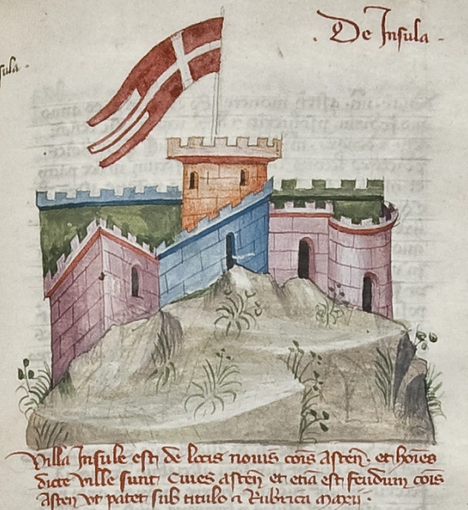 De Insula
sula
Villa Insule est de locis nouis cois asteñ. et hoies
dicte ville sunt Ciues asteñ et etiã est feudum cois
Asteñ vt patet sub titulo et Rubrica